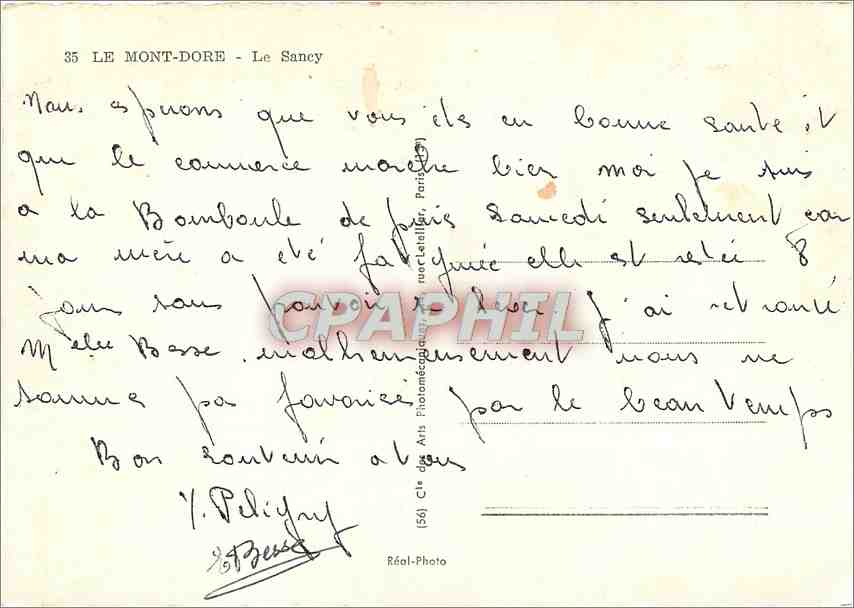 35 LE MONT-DORE - Le Sancy
Nous esperons que vous etes en bonne santé et
que le commerce marche bien moi je suis
a la Bourboule de puis samedi seulement car
ma mère a été fatiguée elle est restée 8
jours sans pouvoir se lever. j'ai retrouvé
Melle Besse malheureusement nous ne
sommes pas favorisés par le beau temps
Bon souvenir a tous
Y. Peligry
Besse
CPAPHIL
(56) Cie des Arts Photomécaniques, rue Letellier, Paris (15e)
Réal-Photo